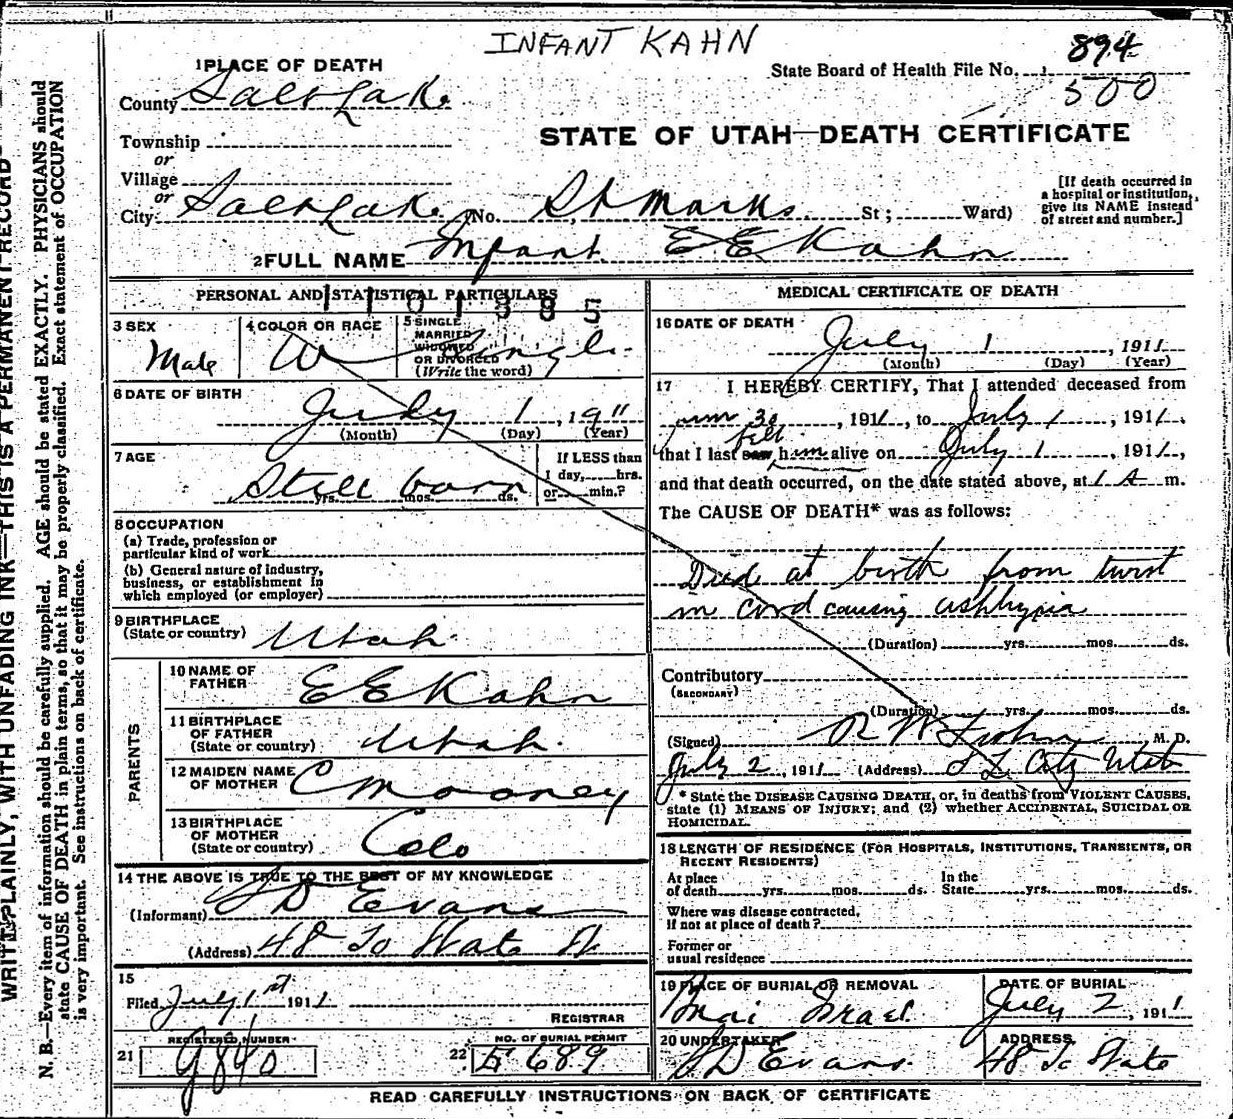 11
INFANT KAHN
894
State Board of Health File No.
500
1 PLACE OF DEATH
County Salt Lake
STATE OF UTAH—DEATH CERTIFICATE
Township
or
Village
or
City Salt Lake (No. St Marks St; Ward)
[If death occurred in a hospital or institution, give its NAME instead of street and number.]
2 FULL NAME Infant E E Kahn
PERSONAL AND STATISTICAL PARTICULARS
3 SEX Male
4 COLOR OR RACE W
5 SINGLE MARRIED WIDOWED OR DIVORCED (Write the word) Single
6 DATE OF BIRTH July 1, 1911
(Month) (Day) (Year)
7 AGE Still born
yrs. mos. ds.
If LESS than 1 day, hrs. or min.?
8 OCCUPATION
(a) Trade, profession or particular kind of work
(b) General nature of industry, business, or establishment in which employed (or employer)
9 BIRTHPLACE (State or country) Utah
PARENTS
10 NAME OF FATHER E E Kahn
11 BIRTHPLACE OF FATHER (State or country) Utah
12 MAIDEN NAME OF MOTHER C Mooney
13 BIRTHPLACE OF MOTHER (State or country) Colo
14 THE ABOVE IS TRUE TO THE BEST OF MY KNOWLEDGE
(Informant) S D Evans
(Address) 48 So State St
15
Filed July 1st 1911
REGISTRAR
REGISTERED NUMBER
21 G840
NO. OF BURIAL PERMIT
22 E 689
MEDICAL CERTIFICATE OF DEATH
16 DATE OF DEATH
July 1, 1911
(Month) (Day) (Year)
17 I HEREBY CERTIFY, That I attended deceased from
June 30, 1911, to July 1, 1911,
that I last saw felt him alive on July 1, 1911,
and that death occurred, on the date stated above, at 1 A m.
The CAUSE OF DEATH* was as follows:
Died at birth from twist
in cord causing asphyxia
(Duration) yrs. mos. ds.
Contributory
(SECONDARY)
(Duration) yrs. mos. ds.
(Signed) R W M. D.
July 2, 1911 (Address) S L City Utah
* State the DISEASE CAUSING DEATH, or, in deaths from VIOLENT CAUSES,
state (1) MEANS OF INJURY; and (2) whether ACCIDENTAL, SUICIDAL OR
HOMICIDAL.
18 LENGTH OF RESIDENCE (FOR HOSPITALS, INSTITUTIONS, TRANSIENTS, OR
RECENT RESIDENTS)
At place of death yrs. mos. ds. In the State yrs. mos. ds.
Where was disease contracted,
if not at place of death?
Former or
usual residence
19 PLACE OF BURIAL OR REMOVAL
Bnai Israel
DATE OF BURIAL
July 2, 1911
20 UNDERTAKER
S D Evans
ADDRESS
48 So State
READ CAREFULLY INSTRUCTIONS ON BACK OF CERTIFICATE
WRITE PLAINLY, WITH UNFADING INK—THIS IS A PERMANENT RECORD
N. B.—Every item of information should be carefully supplied. AGE should be stated EXACTLY. PHYSICIANS should
state CAUSE OF DEATH in plain terms, so that it may be properly classified. Exact statement of OCCUPATION
is very important. See instructions on back of certificate.